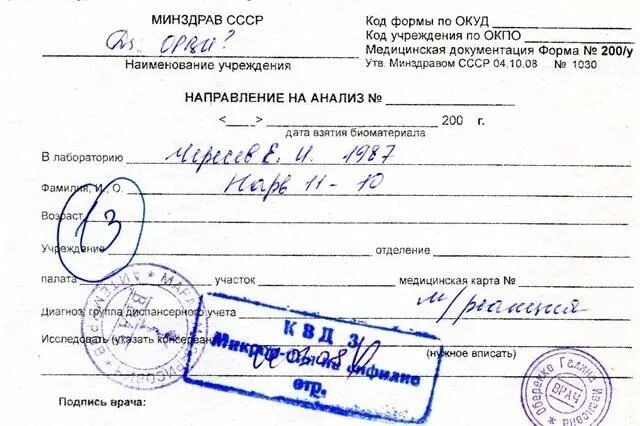 МИНЗДРАВ СССР
Код формы по ОКУД
Ds: ОРВИ?
Код учреждения по ОКПО
Медицинская документация Форма № 200/у
Наименование учреждения
Утв. Минздравом СССР 04.10.08 № 1030
НАПРАВЛЕНИЕ НА АНАЛИЗ №
< > 200 г.
дата взятия биоматериала
В лабораторию Е. И. 1987
Фамилия, И., О. Нарв 11-10
Возраст
13
Учреждение отделение
палата участок медицинская карта №
Диагноз, группа диспансерного учета м/реакция
Исследовать (указать консерван
(нужное вписать)
КВД 3
отр.
Подпись врача:
ВРАЧ
Галина